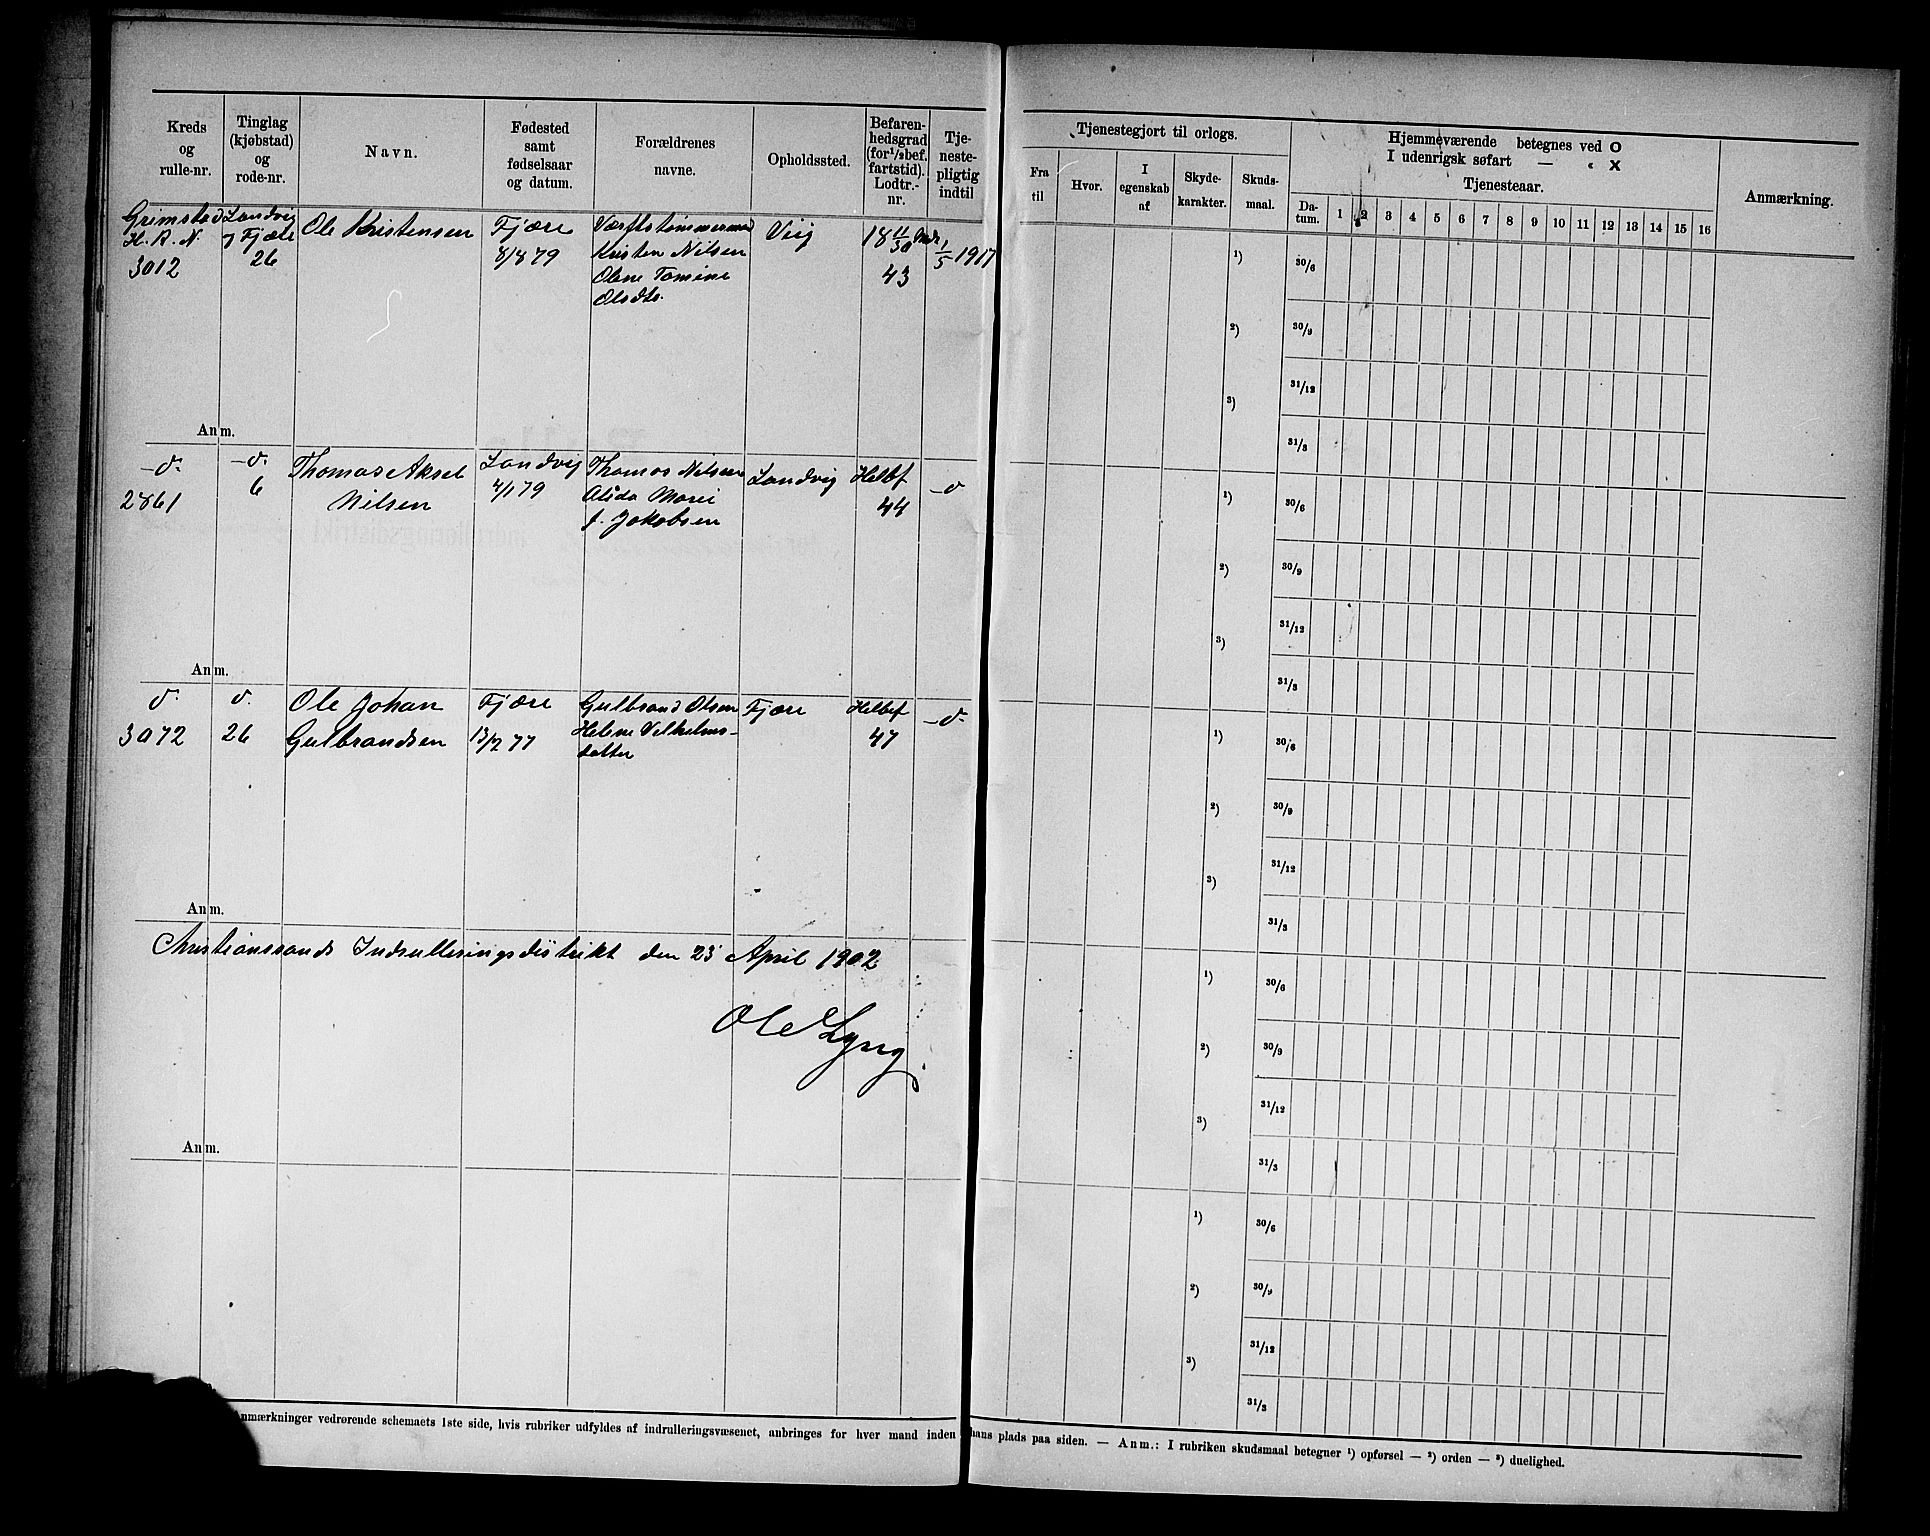 Kreds
og
rulle-nr.
Tinglag
(kjøbstad)
og
rode-nr.
Navn.
Fødested
samt
fødselsaar
og datum.
Forældrenes
navne.
Opholdssted.
Befaren-
hedsgrad
(for ¹/₂bef.
fartstid).
Lodtr.-
nr.
Tje-
neste-
pligtig
indtil
Grimstad
H. R. N.
3012
Landvig
Fjære
26
Ole Kristensen
Fjære
8/8 79
Værftstømmermand
Kristen Nilsen
Olene Tomine
Olsdtr.
Vig
18 11/30 Mdr
43
1/5 1917
Anm.
-d-
2861
-d-
6
Thomas Aksel
Nilsen
Landvig
4/1 79
Thomas Nilsen
Alida Marie
f. Jakobsen
Landvig
Helbef
44
-d-
Anm.
d-
3072
d-
26
Ole Johan
Gulbrandsen
Fjære
13/2 77
Gulbrand Olsen
Helene Vilhelms-
datter
Fjære
Helbef
47
-d-
Anm.
Christianssands Indrulleringsdistrikt den 23 April 1902
Ole Lyng
Anm.
nmærkninger vedrørende schemaets 1ste side, hvis rubriker udfyldes af indrulleringsvæsenet, anbringes for hver mand inden
Tjenestegjort til orlogs.
Fra
til
Hvor.
I
egenskab
af
Skyde-
karakter.
Skuds-
maal.
Hjemmeværende betegnes ved O
I udenrigsk søfart — « X
Tjenesteaar.
Da-
tum. 1 2 3 4 5 6 7 8 9 10 11 12 13 14 15 16
Anmærkning.
¹) 30/6
²) 30/9
31/12
³)
31/3
¹) 30/6
²) 30/9
31/12
³)
31/3
¹) 30/6
²) 30/9
31/12
³)
31/3
¹) 30/6
²) 30/9
31/12
³)
31/3
¹) 30/6
²) 30/9
31/12
³)
31/3
hans plads paa siden. — Anm.: I rubriken skudsmaal betegner ¹) opførsel — ²) orden — ³) duelighed.